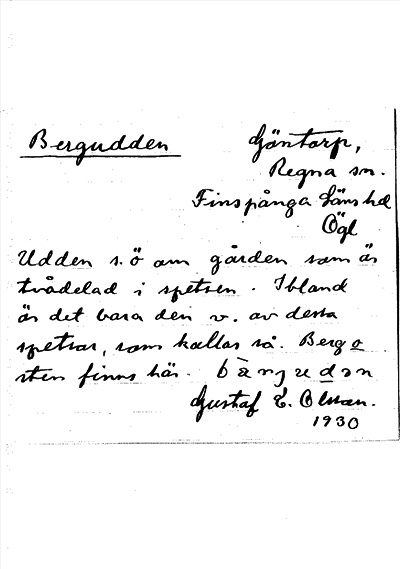 Bergudden
Göntorp,
Regna sn.
Finspånga läns hd
Ögl
Udden s.ö om gården som är
tvådelad i spetsen. Ibland
är det bara den v. av dessa
spetsar, som kallas så. Berg o
sten finns här. bàrjudən
Gustaf E. Olsson.
1930